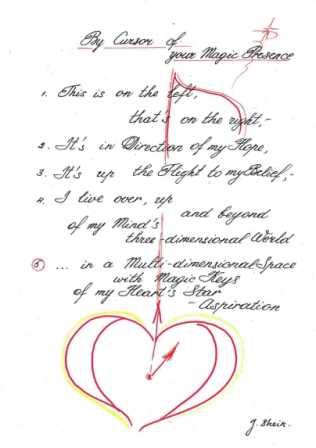 By Cursor of
your Magic Presence
1. This is on the left,
that's on the right,-
2. It's in Direction of my Hope,
3. It's up the Flight to my Belief,-
4. I live over, up
and beyond
of my Mind's
three-dimensional World
5 ... in a Multi-dimensional Space
with Magic Keys
of my Heart's Star
- Aspiration
J. Shein.